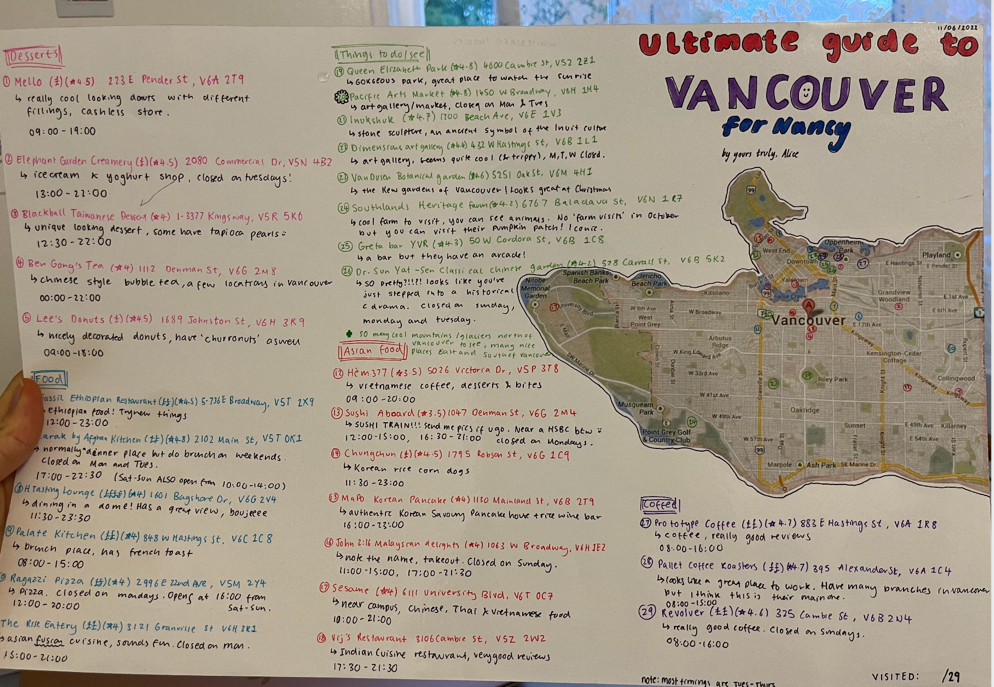 11/06/2022
Ultimate guide to
VANCOUVER
for Nancy
by yours truly, Alice
Desserts
① Mello (£)(★4.5) 223 E Pender St, V6A 2T9
↳ really cool looking donuts with different
fillings, cashless store.
09:00 - 19:00
② Elephant Garden Creamery (£)(★4.5) 2080 Commercial Dr, V5N 4B2
↳ ice cream & yoghurt shop, closed on tuesdays!
13:00 - 22:00
③ Blackball Taiwanese Dessert (★4) 1-3377 Kingsway, V5R 5K6
↳ unique looking dessert, some have tapioca pearls
12:30 - 22:00
④ Ben Gong's Tea (★4) 1112 Denman St, V6G 2M8
↳ chinese style bubble tea, a few locations in Vancouver
00:00 - 22:00
⑤ Lee's Donuts (£)(★4.5) 1689 Johnston St, V6H 3K9
↳ nicely decorated donuts, have 'churronuts' aswell
09:00 - 18:00
Food
Fassil Ethiopian Restaurant (££)(★4.5) 5-736 E Broadway, V5T 1X9
↳ ethiopian food! Try new things
12:00 - 23:00
Zarak by Afghan Kitchen (££)(★4.8) 2102 Main St, V5T 0K1
↳ normally dinner place but do brunch on weekends.
Closed on Mon and Tues.
17:00 - 22:30 (Sat-Sun ALSO open from 10:00-14:00)
H Tasting Lounge (£££) 1601 Bayshore Dr, V6G 2V4
↳ dining in a dome! Has a great view, boujeeee
11:30 - 23:30
Palate Kitchen (££)(★4) 848 W Hastings St, V6C 1C8
↳ brunch place, has french toast
08:00 - 15:00
Ragazzi Pizza (££)(★4) 2996 E 22nd Ave, V5M 2Y4
↳ Pizza. closed on mondays. Opens at 16:00 from
12:00 - 20:00 Sat-Sun.
The Rise Eatery (££)(★4) 3121 Granville St V6H 3K1
↳ asian fusion cuisine, sounds fun. Closed on mon.
15:00 - 21:00
Things to do/see
⑲ Queen Elizabeth Park (★4.8) 4600 Cambie St, V5Z 2Z1
↳ GORGEOUS park, great place to watch the sunrise
Pacific Arts Market (★4.8) 1450 W Broadway, V6H 1H4
↳ art gallery/market, closed on Mon & Tues
㉑ Inukshuk (★4.7) 1700 Beach Ave, V6E 1V3
↳ stone sculpture, an ancient symbol of the Inuit culture
㉒ Dimensions art gallery 432 W Hastings St, V6B 1L1
↳ art gallery, seems quite cool (& trippy), M,T,W closed.
㉓ VanDusen Botanical garden 5251 Oak St, V6M 4H1
↳ the Kew gardens of Vancouver! Looks great at Christmas
㉔ Southlands Heritage farm (★4.2) 6767 Balaclava St, V6N 1R7
↳ cool farm to visit, you can see animals. No 'farm visits' in October
but you can visit their pumpkin patch! Iconic.
㉕ Greta bar YVR (★4.3) 50 W Cordova St, V6B 1C8
↳ a bar but they have an arcade!
㉖ Dr. Sun Yat-Sen Classical chinese garden 578 Carrall St, V6B 5K2
↳ SO pretty!!!!! looks like you've
just stepped into a historical
C drama. closed on Sunday,
monday and tuesday.
so many cool mountains/glaciers north of
vancouver to see, many nice
places East and South of vancouver
Asian food
⑫ Hẻm 377 (★3.5) 5026 Victoria Dr, V5P 3T8
↳ vietnamese coffee, desserts & bites
09:00 - 20:00
⑬ Sushi Aboard (★3.5) 1047 Denman St, V6G 2M4
↳ SUSHI TRAIN!!! Send me pics if u go. Near a HSBC btw
12:00-15:00, 16:30-21:00 closed on Mondays.
⑭ Chungchun (★4.5) 1795 Robson St, V6G 1C9
↳ Korean rice corn dogs
11:30 - 23:00
⑮ MaPo Korean Pancake (★4) 1150 Mainland St, V6B 2T9
↳ authentic Korean Savoury Pancake house + rice wine bar
16:00 - 23:00
⑯ John 3:16 Malaysian delights (★4) 1063 W Broadway, V6H 1E2
↳ note the name, takeout. Closed on Sunday.
11:00-15:00, 17:00-21:30
⑰ Sesame (★4) 6111 University Blvd, V6T 0C7
↳ near campus, Chinese, Thai & vietnamese food
10:00 - 21:00
⑱ Vij's Restaurant 3106 Cambie St, V5Z 2W2
↳ Indian Cuisine restaurant, very good reviews
17:30 - 21:30
99
West End
Oppenheimer Park
Downtown
False Creek
E Hastings St
E Pender St
Playland
Grandview Woodland
E 1st Ave
Vancouver
E 12th Ave
Kensington-Cedar Cottage
Collingwood
Kingsway
Riley Park
Nitobe Memorial Garden
Spanish Banks Beach Park
Jericho Beach Park
Kitsilano
West Point Grey
W Broadway
Arbutus Ridge
W King Edward
W 33rd Ave
W 41st Ave
W 49th Ave
W 57th Ave
Granville St
SW Marine Dr
Musqueam Park
Point Grey Golf & Country Club
Oakridge
Sunset
Marpole
Ash Park
SE Marine Dr
E 41st Ave
E 49th Ave
E 54th Ave
Killarney
Coffee
㉗ Prototype Coffee (££)(★4.7) 883 E Hastings St, V6A 1R8
↳ coffee, really good reviews
08:00 - 16:00
㉘ Pallet Coffee Roasters (££) 395 Alexander St, V6A 1C4
↳ looks like a great place to work. Have many branches in vancouver
but I think this is their main one.
08:00-15:00
㉙ Revolver (££)(★4.6) 325 Cambie St, V6B 2N4
↳ really good coffee. Closed on Sundays.
08:00 - 16:00
note: most timings are Tues-Thurs
VISITED: /29